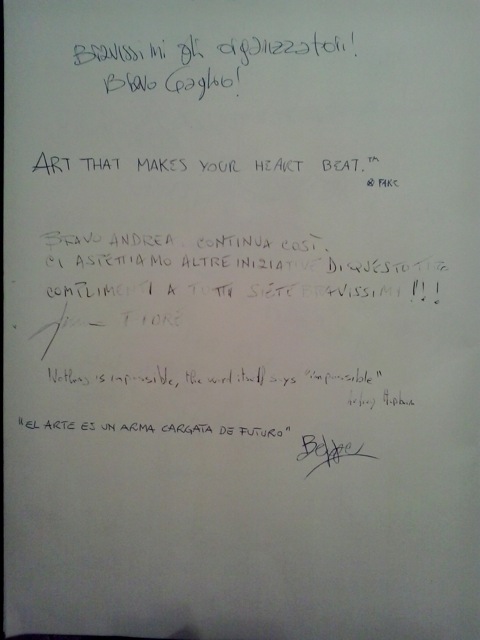 Bravissimi gli organizzatori!
Bravo Gaglio!
ART THAT MAKES YOUR HEART BEAT.™
® FAKE
BRAVO ANDREA, CONTINUA COSÌ.
CI ASPETTIAMO ALTRE INIZIATIVE DI QUESTO TIPO
COMPLIMENTI A TUTTI SIETE BRAVISSIMI!!!
Nothing is impossible, the word itself says "impossible"
Audrey Hepburn
"EL ARTE ES UN ARMA CARGATA DE FUTURO"